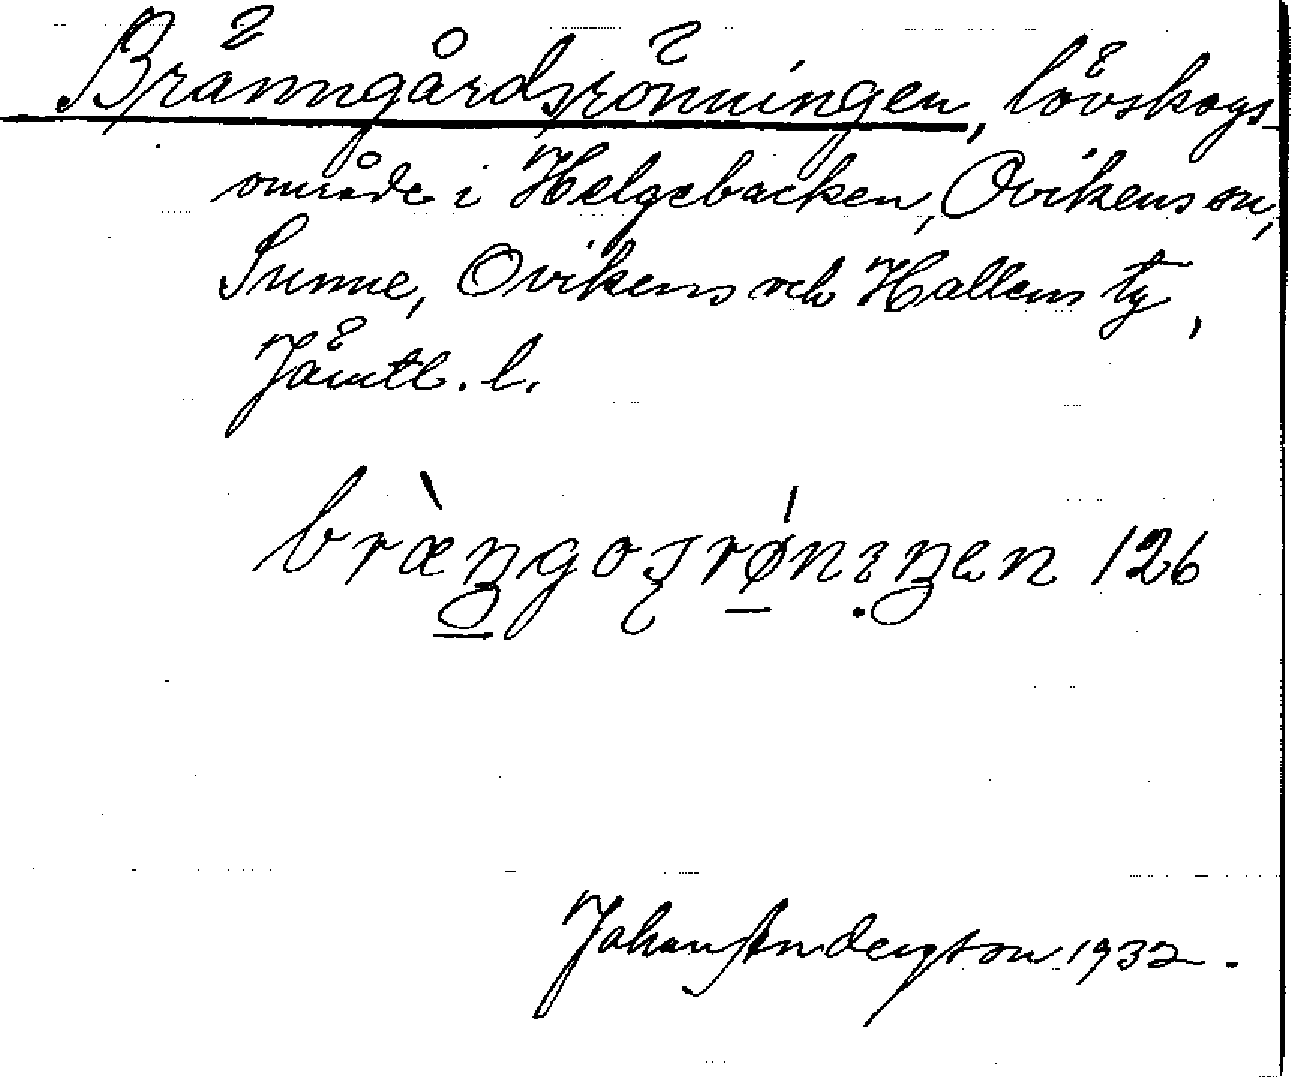 Bränngårdsrönningen, lövskogs-
område i Helgebacken, Ovikens sn,
Sunne, Ovikens och Hallens tg,
Jämtl. l.
bræ̀ŋgoʂrǿnıŋen 126
Johan Andersson 1932.